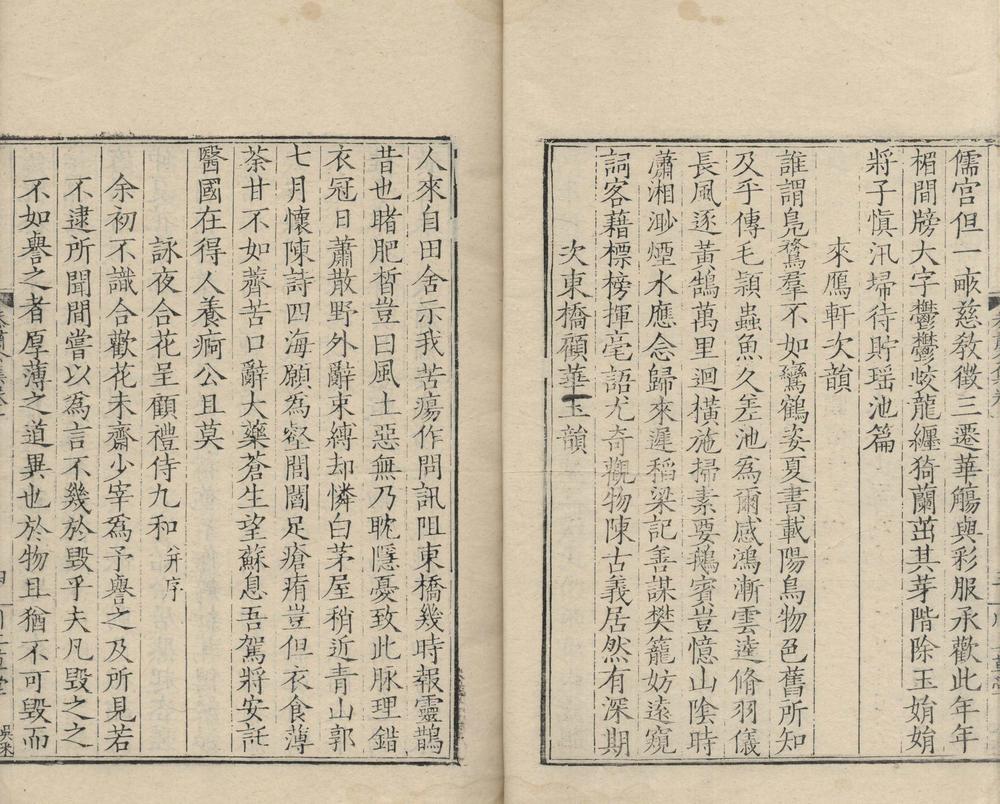 儒宫但一畝慈敎徵三遷華觴與彩服承歡此年年
楣間牓大字鬱鬱蛟龍纏猗蘭茁其芽階除玉娟娟
將子慎汛埽待貯瑶池篇
來鴈軒次韻
誰謂鳧鶩羣不如鸞鶴姿夏書載陽鳥物色舊所知
及乎傳毛頴蟲魚久差池為爾感鴻漸雲逵脩羽儀
長風逐黃鵠萬里迴橫施掃素要鵝賓豈憶山隂時
瀟湘渺煙水應念歸來遲稻梁記善謀樊籠妨遠窺
詞客藉標榜揮毫語尤奇觀物陳古義居然有深期
次東橋顧華玉韻
人來自田舍示我苦瘍作問訊阻東橋幾時報靈鵲
昔也睹肥晳豈曰風土惡無乃耽隱憂致此脉理錯
衣冠日蕭散野外辭束縛却憐白茅屋稍近青山郭
七月懷陳詩四海願為壑閭閻足瘡痏豈但衣食薄
荼甘不如薺苦口辭大藥蒼生望蘇息吾駕將安託
醫國在得人養痾公且莫
詠夜合花呈顧禮侍九和 并序
余初不識合歡花未齋少宰為予譽之及所見若
不逮所聞間嘗以為言不幾於毁乎夫凡毁之之
不如譽之者厚薄之道異也於物且猶不可毁而